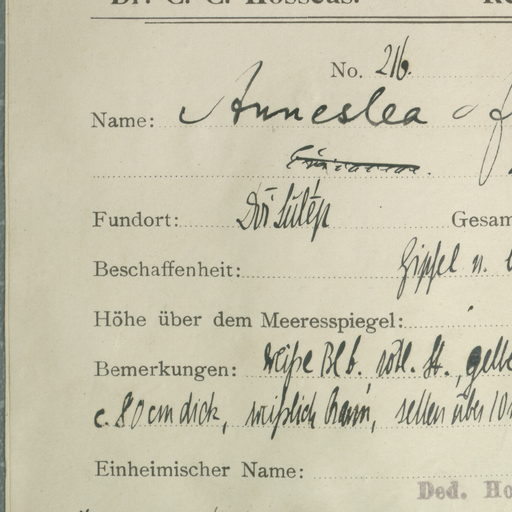 Dr. C. C. Hosseus.
No. 216.
Name: Anneslea
Fundort: Doi Sutēp Gesam
Beschaffenheit: Gipfel u.
Höhe über dem Meeresspiegel:
Bemerkungen: weiße Bl b. rötl. St., gelbe
c. 80 cm dick, weißlich braun, selten über 10
Einheimischer Name:
Ded. Ho